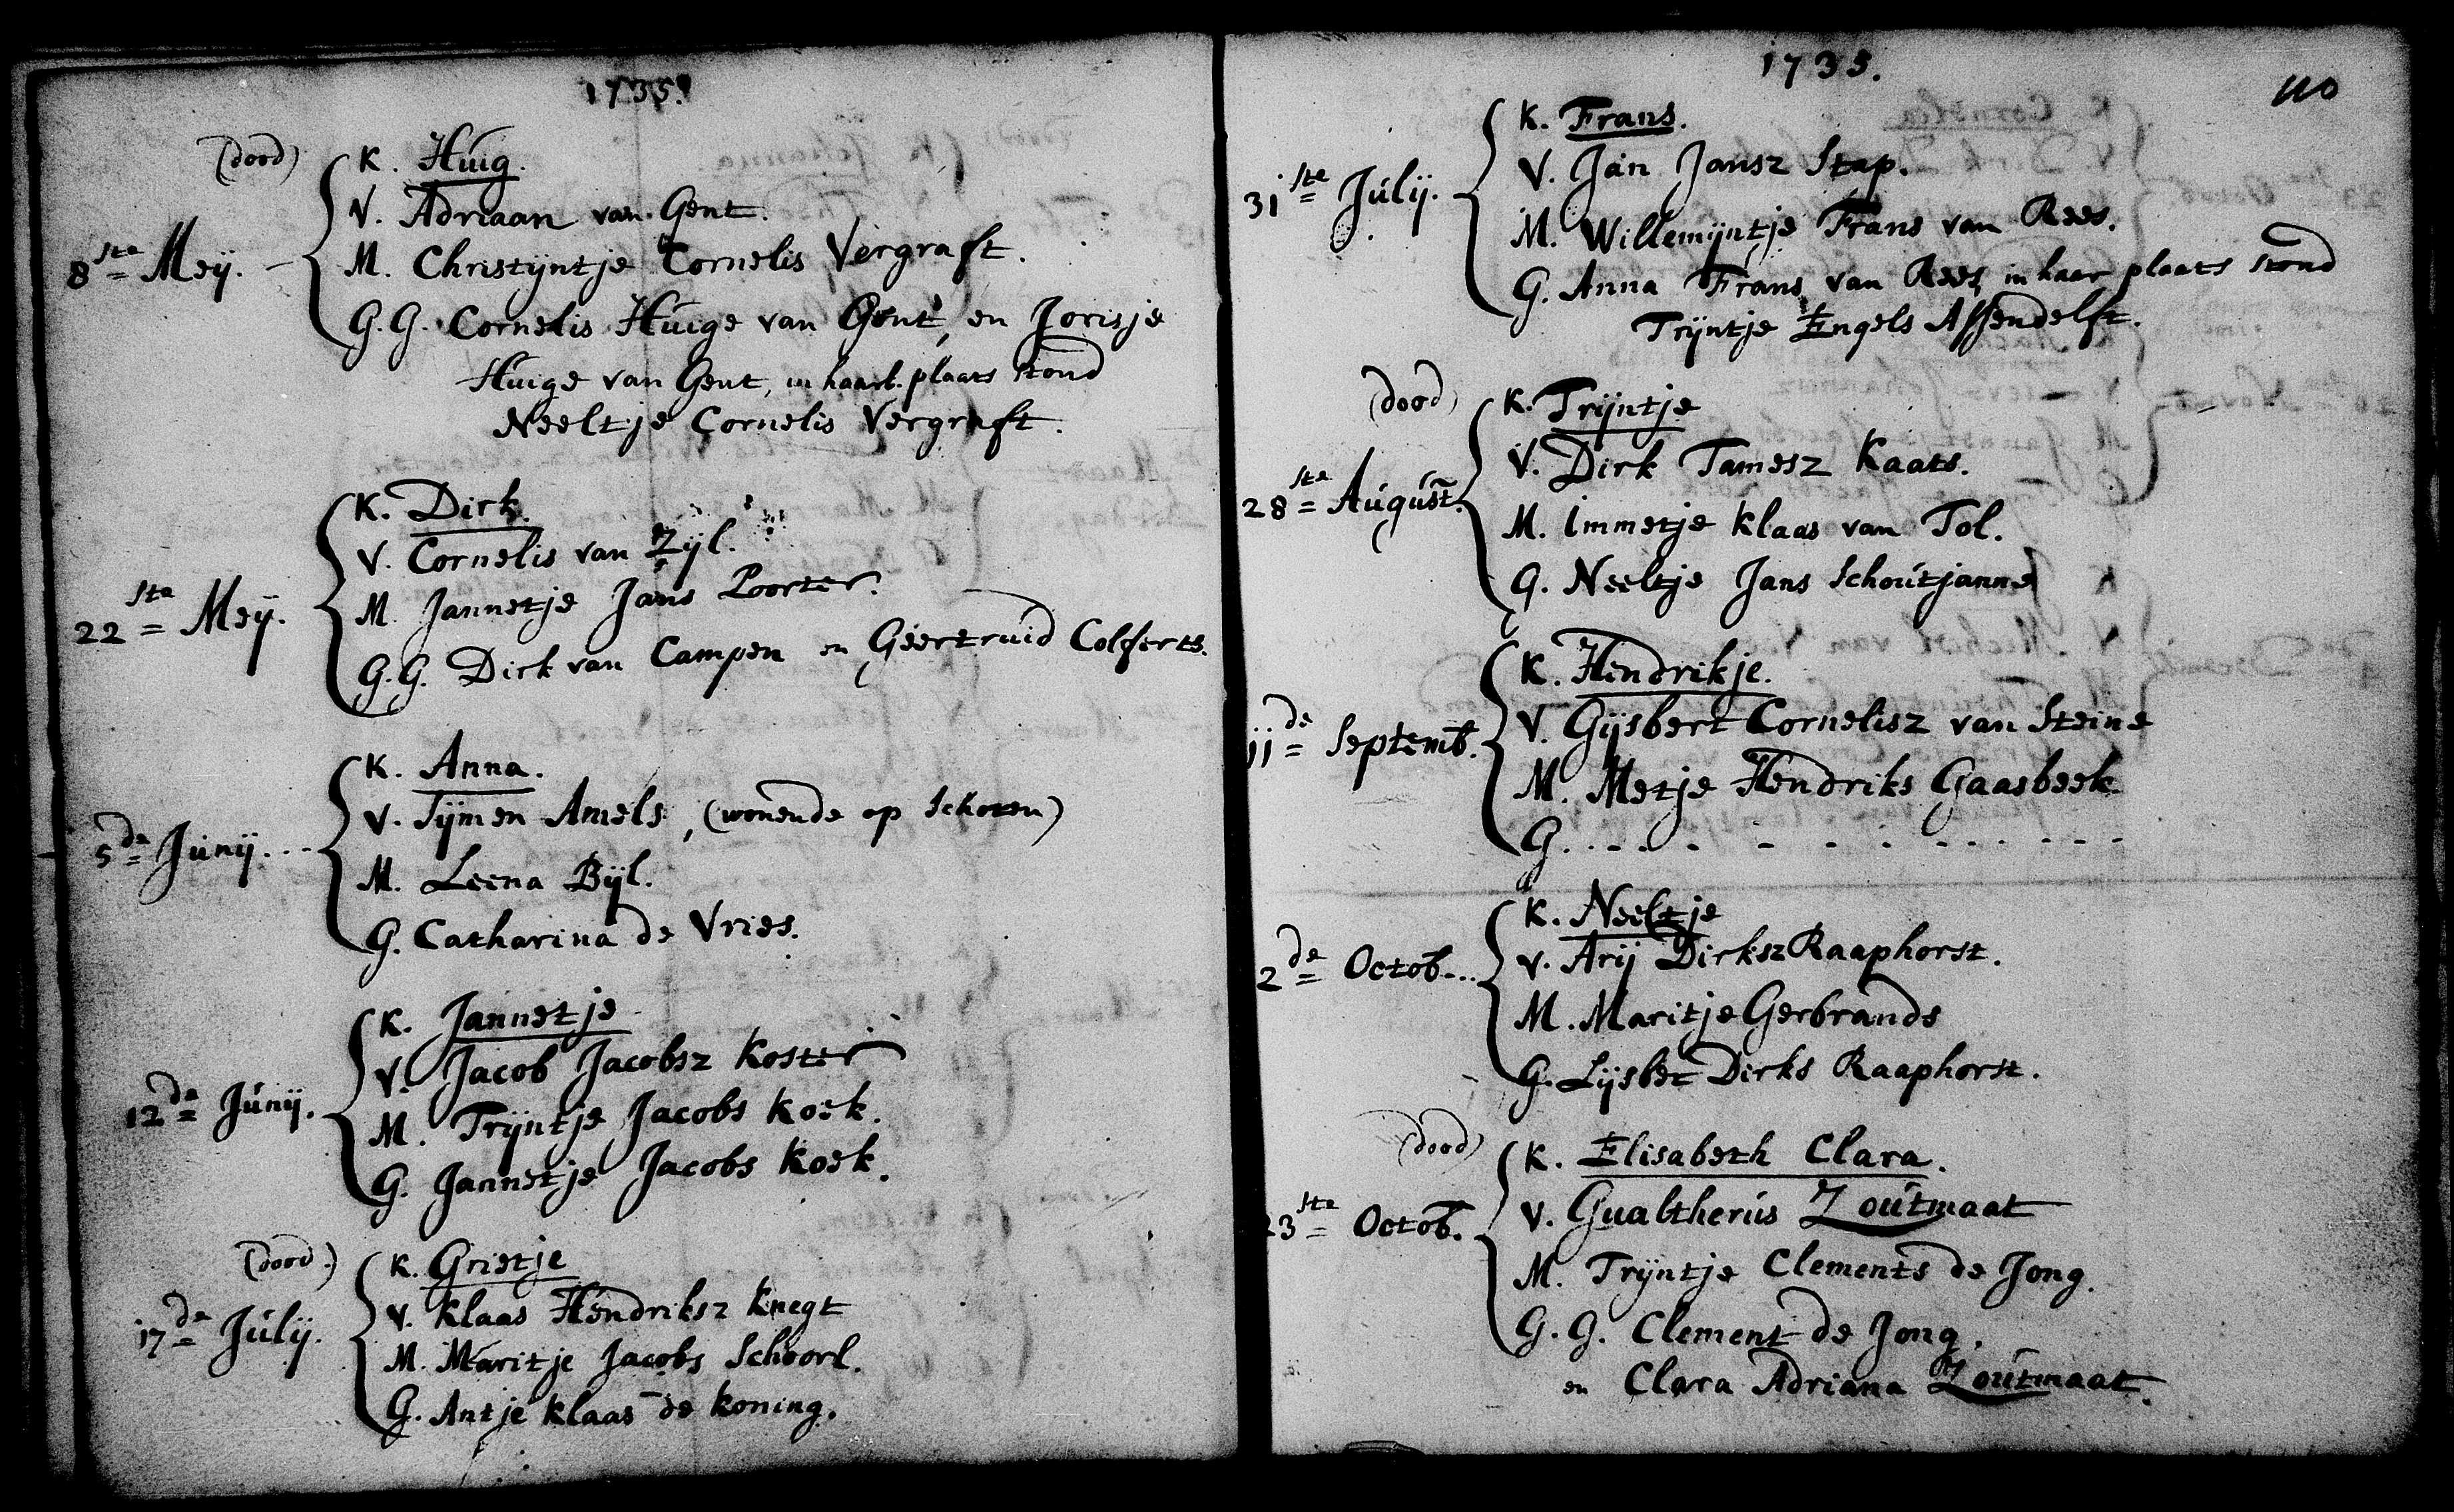 1735.
(dood)
K. Huig.
V. Adriaan van Gent.
8ste Meij.
M. Christijntje Cornelis Vergraft.
G.G. Cornelis Huige van Gent, en Jorisje
Huige van Gent, in haarl. plaats stond
Neeltje Cornelis Vergraft.
K. Dirk.
V. Cornelis van Zijl.
22ste Meij.
M. Jannetje Jans Poorter.
G.G. Dirk van Campen en Geertruid Colferts.
K. Anna.
V. Tijmen Amels, (wonende op Schoten)
5de Junij...
M. Leena Bijl.
G. Catharina de Vries.
K. Jannetje
V. Jacob Jacobsz Koster
12de Junij.
M. Trijntje Jacobs Koek.
G. Jannetje Jacobs Koek.
(dood.)
K. Grietje
V. Klaas Hendriksz Knegt
17de Julij.
M. Maritje Jacobs Schoorl.
G. Antje Klaas de Koning.
1735.
110
K. Frans.
V. Jan Jansz Stap.
31ste Julij.
M. Willemijntje Frans van Rees.
G. Anna Frans van Rees, in haar plaats stond
Trijntje Engels Assendelft.
(dood)
K. Trijntje
V. Dirk Tamesz Kaats.
28ste August.
M. Immetje Klaas van Tol.
G. Neeltje Jans Schoutjanne
K. Hendrikje.
V. Gijsbert Cornelisz van Steine
11de Septemb.
M. Metje Hendriks Gaasbeek
G. . - . . - - - . - - - -
K. Neeltje
V. Arij Dirksz Raaphorst.
2de Octob...
M. Maritje Gerbrands
G. Lijsbet Dirks Raaphorst.
(dood)
K. Elisabeth Clara.
V. Gualtherus Zoutmaat
23ste Octob.
M. Trijntje Clements de Jong.
G.G. Clement de Jong,
en Clara Adriana Zoutmaat.